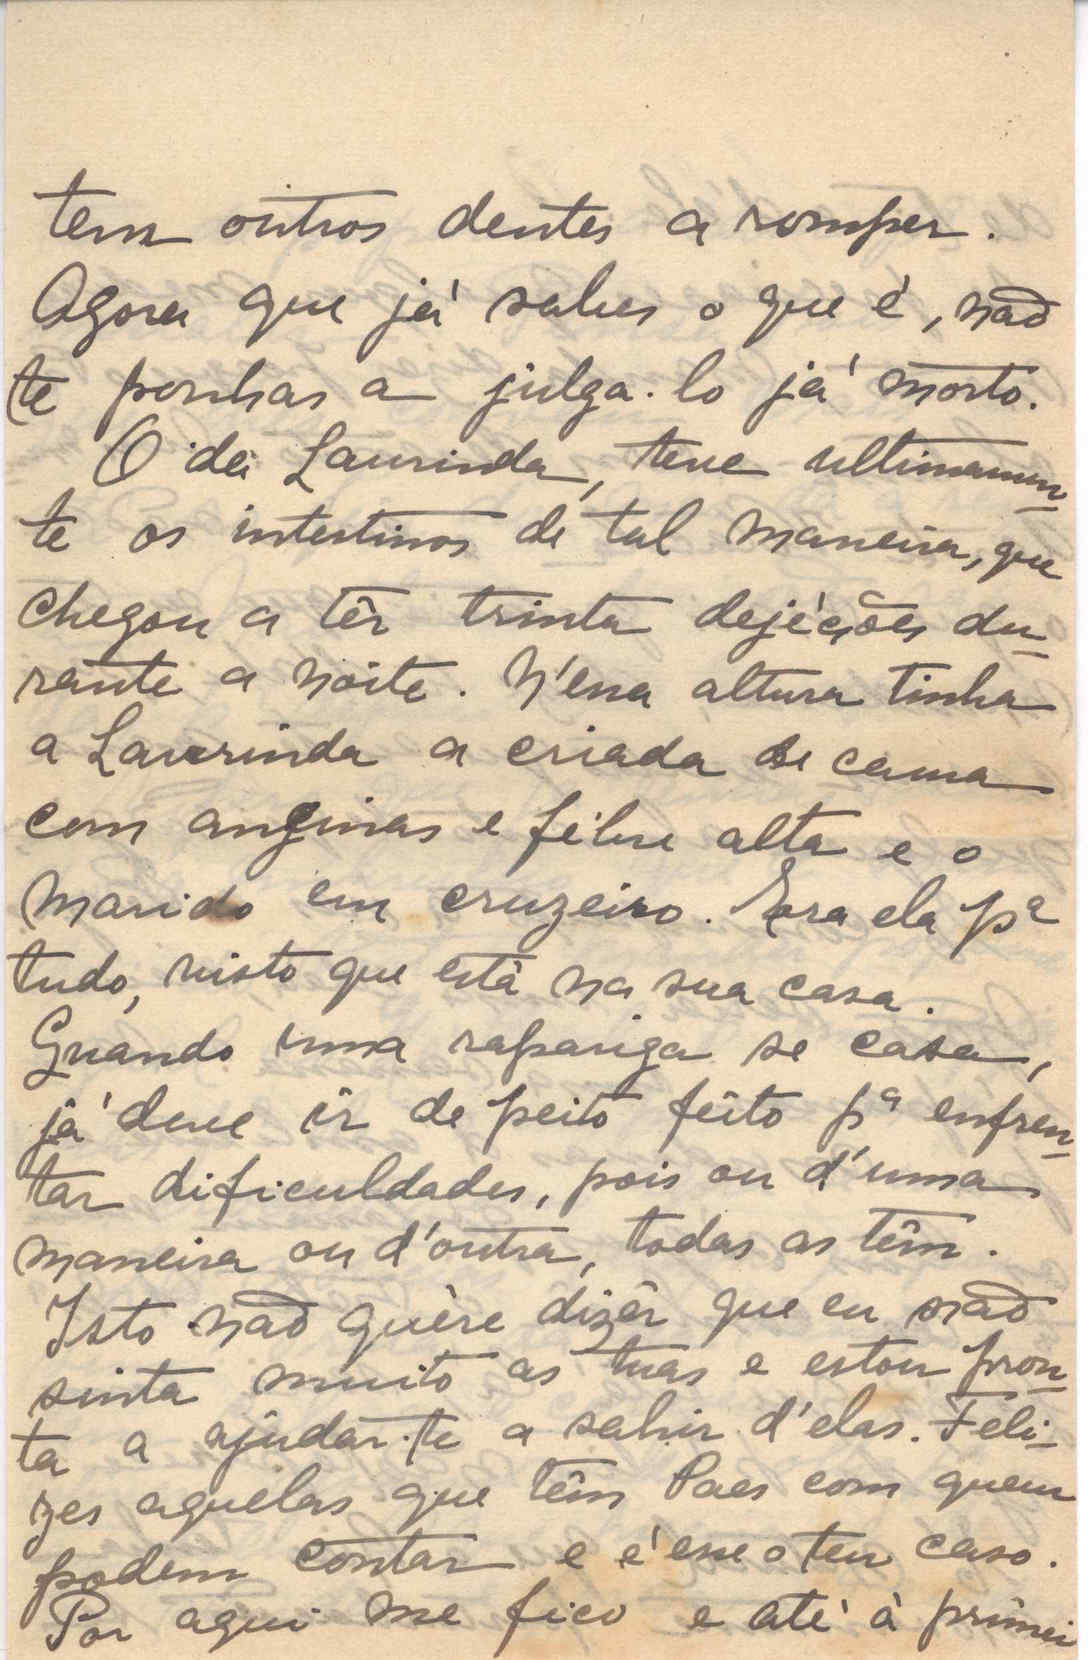 tem outros dentes a romper.
Agora que já sabes o que é, não
te ponhas a julga-lo já morto.
O da Laurinda, teve ultimamen-
te os intestinos de tal maneira, que
chegou a têr trinta dejécções du-
rante a noite. N'essa altura tinha
a Laurinda a criada de cama
com anginas e fébre alta e o
marido em cruzeiro. Era ela pª
tudo, visto que está na sua casa.
Quando uma rapariga se casa,
já deve ir de peito feito pª enfren-
tar dificuldades, pois ou d'uma
maneira ou d'outra, todas as têm.
Isto não quère dizêr que eu não
sinta muito as tuas e estou pron-
ta a ajudar-te a sahir d'elas. Feli-
zes aquelas que têm Paes com quem
podem contar e é esse o teu caso.
Por aqui me fico e até à primei